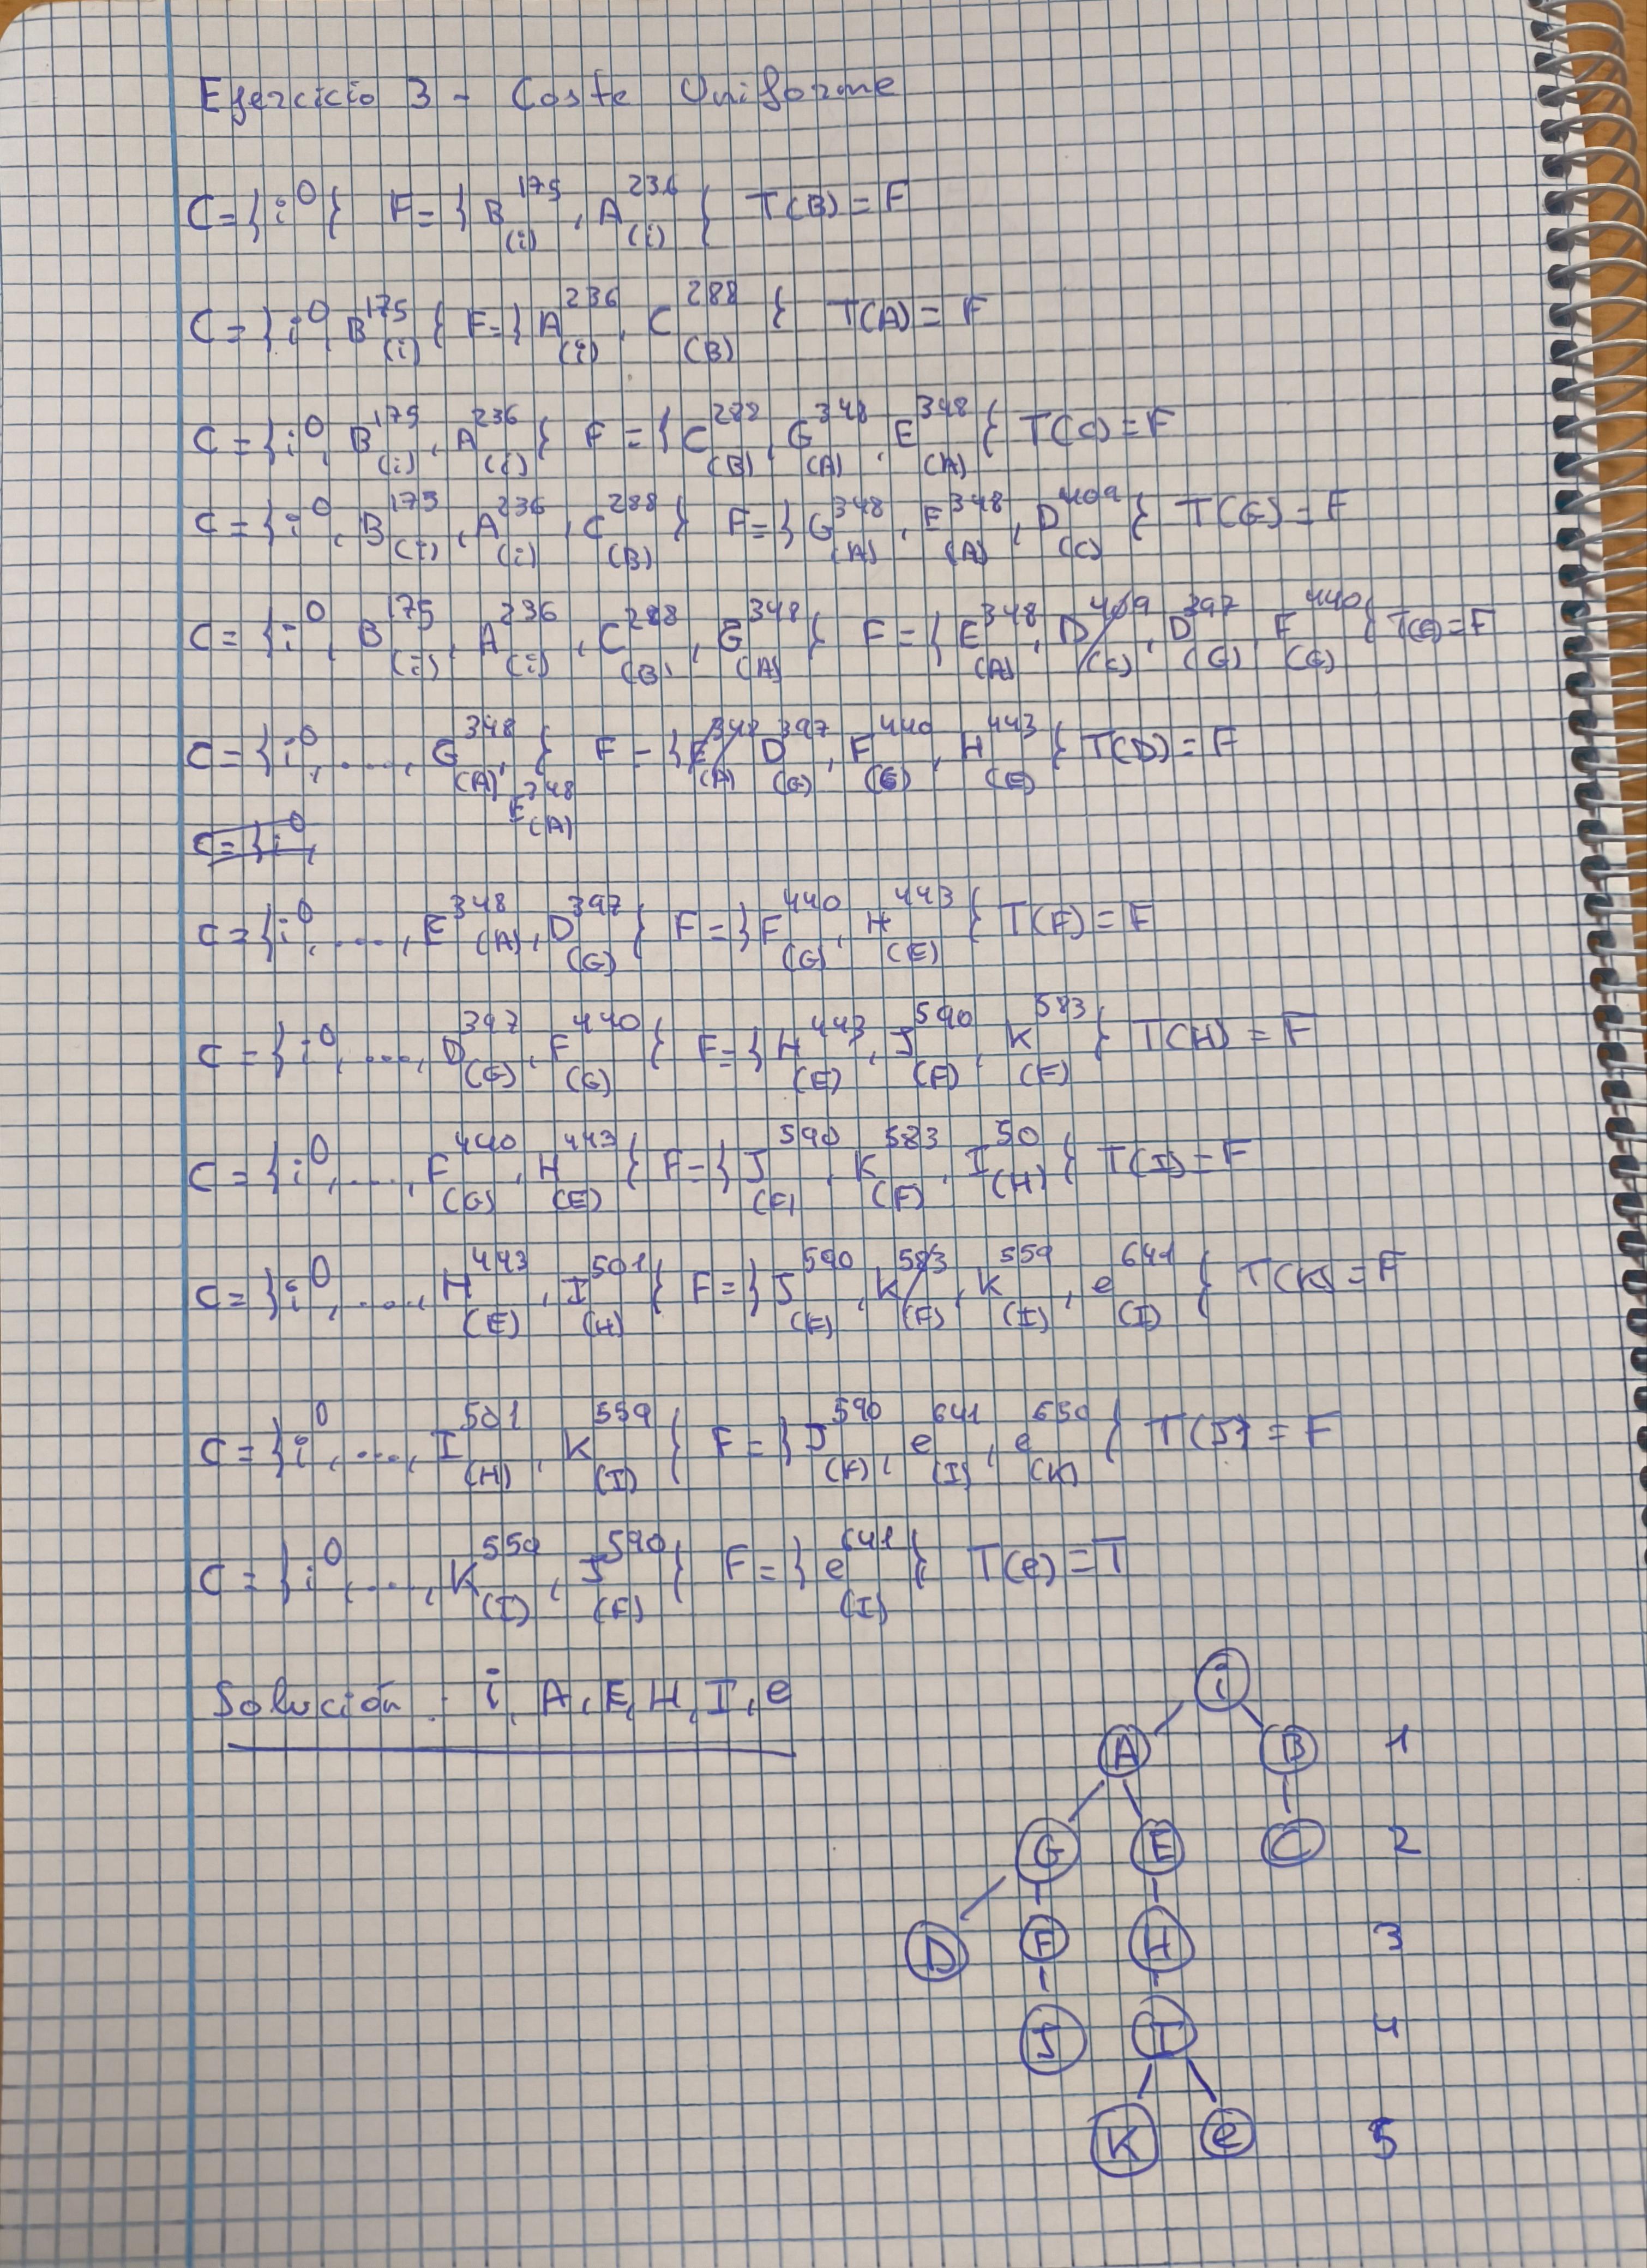 Ejercicio 3 - Coste Uniforme
C = {i^0} F = {B^175 (i), A^236 (i)} T(B) = F
C = {i^0, B^175 (i)} F = {A^236 (i), C^288 (B)} T(A) = F
C = {i^0, B^175 (i), A^236 (i)} F = {C^288 (B), G^348 (A), E^348 (A)} T(C) = F
C = {i^0, B^175 (i), A^236 (i), C^288 (B)} F = {G^348 (A), E^348 (A), D^409 (C)} T(G) = F
C = {i^0, B^175 (i), A^236 (i), C^288 (B), G^348 (A)} F = {E^348 (A), D^409 (C), D^397 (G), F^440 (G)} T(E) = F
C = {i^0, ...., G^348 (A), E^348 (A)} F = {E^348 (A) D^397 (G), F^440 (G), H^443 (E)} T(D) = F
C = {i^0,
C = {i^0, ...., E^348 (A), D^397 (G)} F = {F^440 (G), H^443 (E)} T(F) = F
C = {i^0, ...., D^397 (G), F^440 (G)} F = {H^443 (E), J^590 (F), K^583 (F)} T(H) = F
C = {i^0, ...., F^440 (G), H^443 (E)} F = {J^590 (F), K^583 (F), I^50 (H)} T(I) = F
C = {i^0, ...., H^443 (E), I^501 (H)} F = {J^590 (F), K^583 (F), K^559 (I), e^641 (I)} T(K) = F
C = {i^0, ...., I^501 (H), K^559 (I)} F = {J^590 (F), e^641 (I), e^650 (K)} T(J) = F
C = {i^0, ...., K^559 (I), J^590 (F)} F = {e^641 (I)} T(e) = T
Solución : i, A, E, H, I, e
i
A B 1
G E C 2
D F H 3
J I 4
K e 5